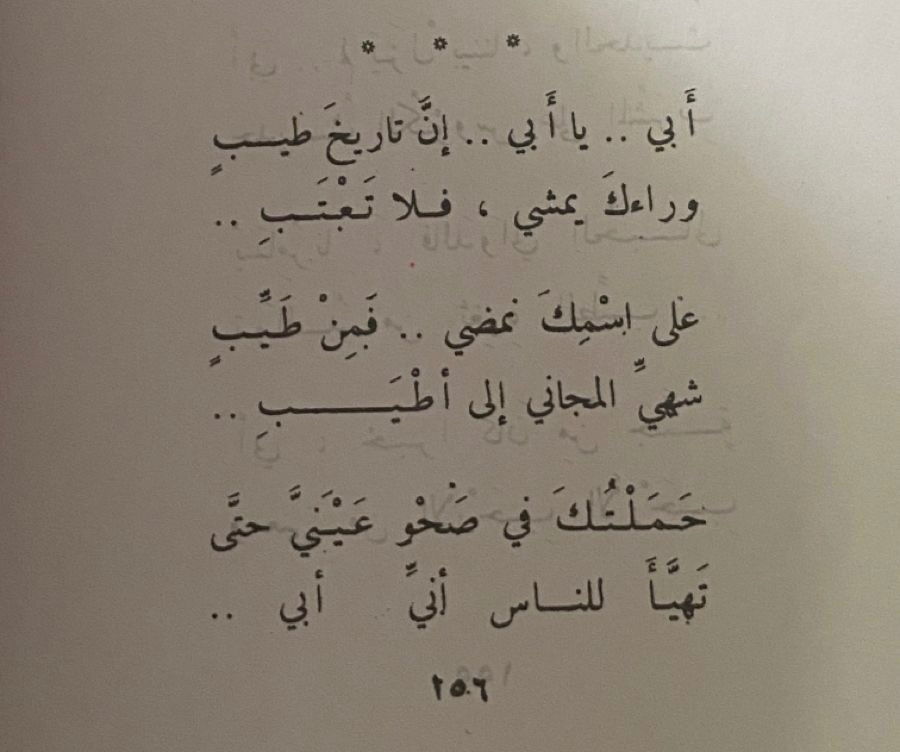 * * *
أَبي .. يا أَبي .. إنَّ تاريخَ طيبٍ
وراءكَ يمشي ، فلا تَعْتَبِ ..
على اسْمِكَ نمضي .. فَمِنْ طَيِّبٍ
شهيِّ المجاني إلى أطْيَبِ ..
حَمَلْتُكَ في صَحْو عَيْنَيَّ حتَّى
تَهيَّأَ للناس أنِّي أبي ..
١٥٦